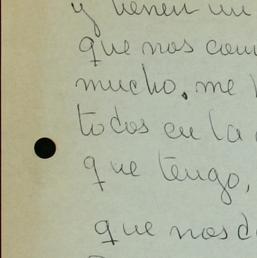 y tienen un
que nos com
mucho. me
todos en la
que tengo,
que nos d